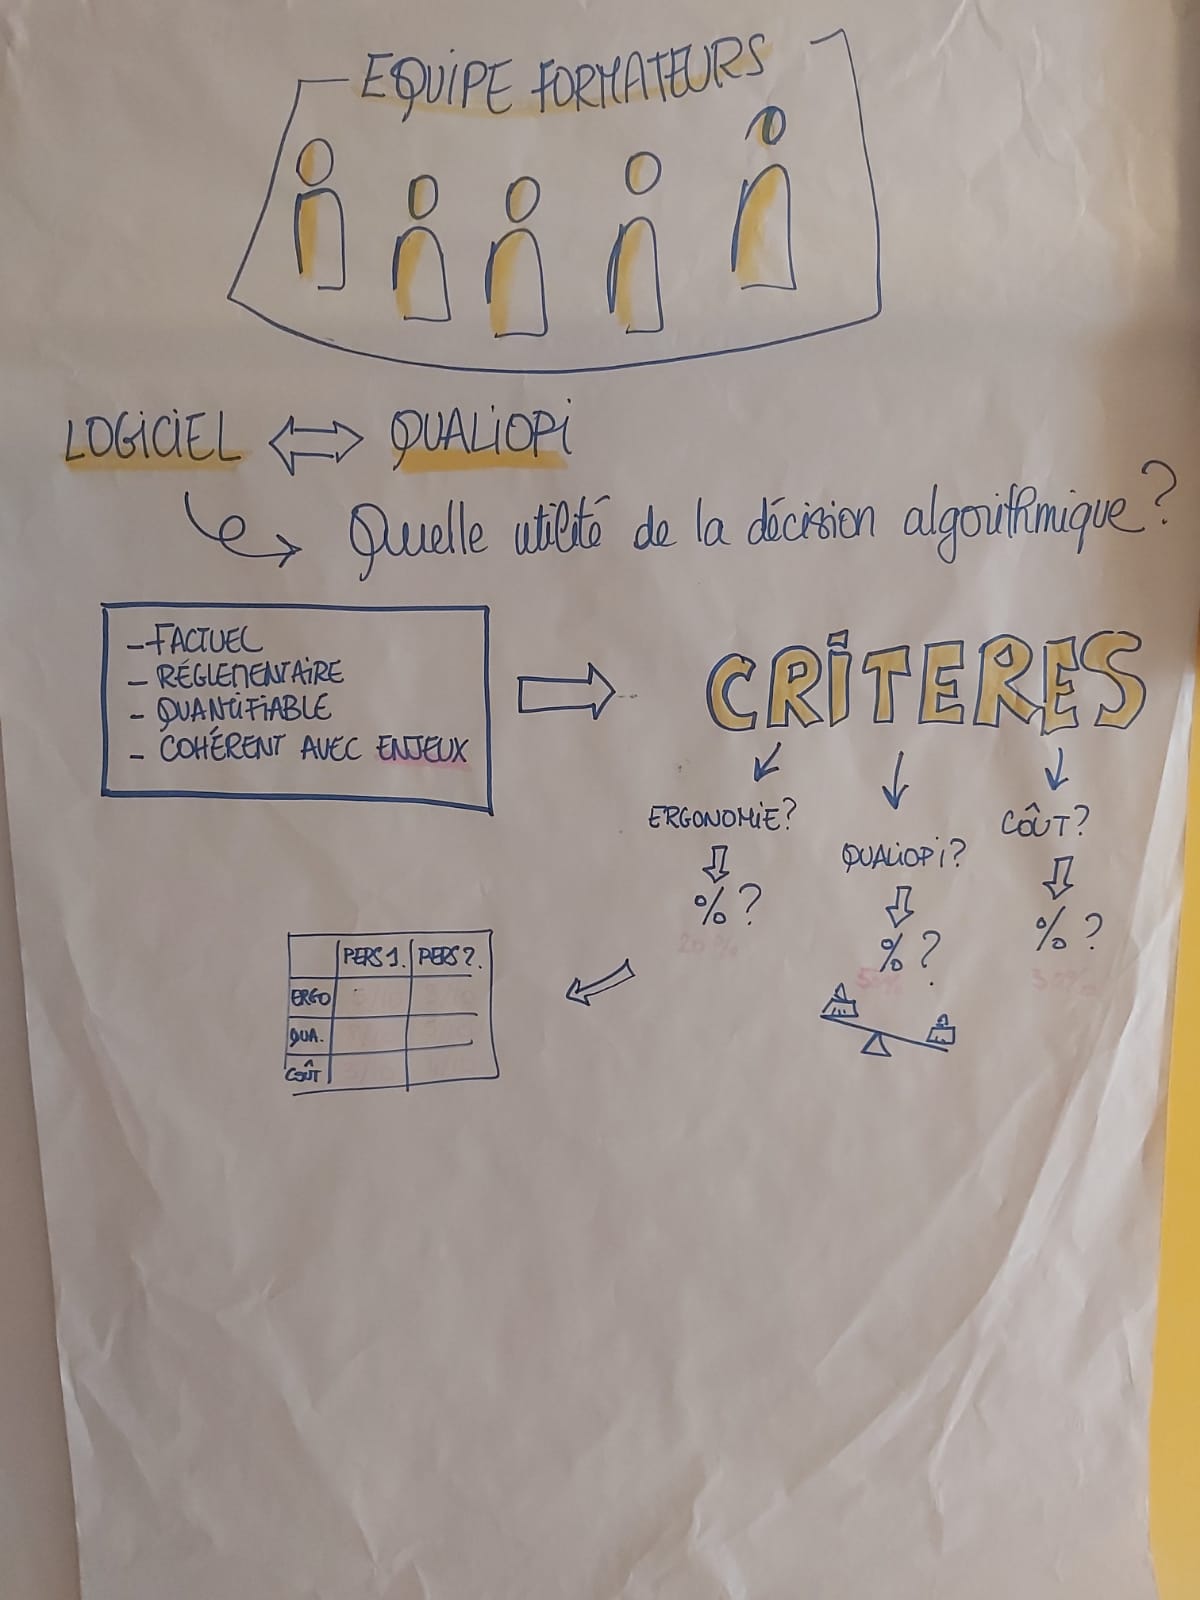 EQUIPE FORMATEURS
LOGiCiEL QUALiOPi
Quelle utilité de la décision algorithmique ?
- FACTUEL
- RÉGLEMENTAiRE
- QUANTiFiABLE
- COHÉRENT AVEC ENJEUX
CRiTERES
ERGONOMiE ?
QUALiOPi ?
COÛT ?
% ?
% ?
% ?
20%
50%
30%
PERS 1. PERS 2.
ERGO
QUA.
COÛT